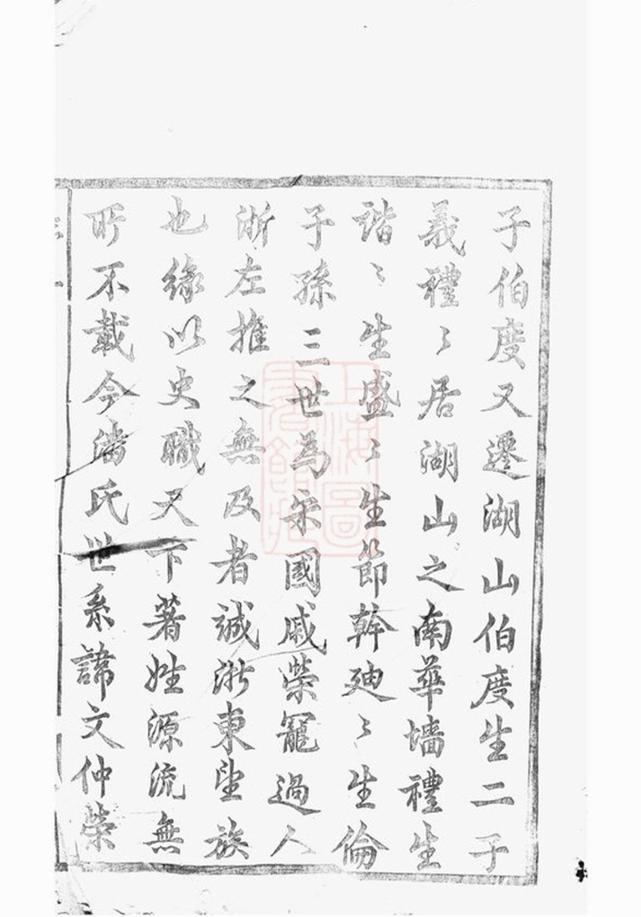 子伯度又遷湖山伯度生二子
義禮〻居湖山之南華墻禮生
諧〻生盛〻生節幹廸〻生倫
子孫三世為宋國戚榮寵過人
浙左推之無及者誠浙東望族
也緣以史職天下著姓源流無
所不載今潘氏世系諱文仲榮
上海圖書館藏